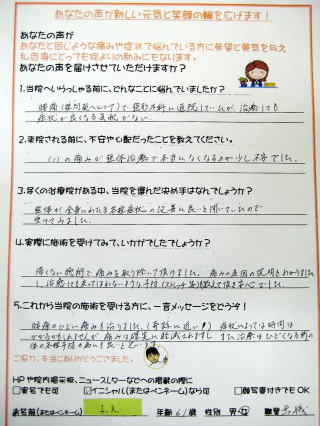 あなたの声が新しい元気と笑顔の輪を広げます！
あなたの声が
あなたと同じような痛みや症状で悩んでいる方に希望と勇気を与え
私自身にとっても何よりの励みにもなります。
あなたの声を届けさせていただけますか？
1.当院へいらっしゃる前に、どんなことに悩んでいましたか？
腰痛（椎間板ヘルニア）で整形外科に通院していたが、治療しても
症状が良くなる気配がない
2.来院される前に、不安や心配だったことを教えてください。
(1)の痛みが整体治療で本当になくなるのかが少し不安でした。
3.尽くの治療院がある中、当院を選んだ決め手はなんでしょうか？
整体が全身にわたる各種症状の改善に良いと聞いていたので
受けてみました。
4.実際に施術を受けてみて、いかがでしたでしょうか？
痛くない施術で痛みを取り除いて頂けました。痛みの原因の説明もわかりました
し
5.これから当院の施術を受ける方に、一言メッセージをどうぞ！
腰痛のひどい痛みも治りました。(奇跡に近い！) 症状によっては時間は
かかるかもしれませんが痛みは確実に
ご協力、本当にありがとうございました。
HPや院内掲示板、ニュースレターなどへの掲載の際に
□実名でも可 ☑イニシャル(またはペンネーム)なら可 □顔写真付きでもOK
お名前(またはペンネーム) I.K. 年齢 61歳 性別 男・女 職業